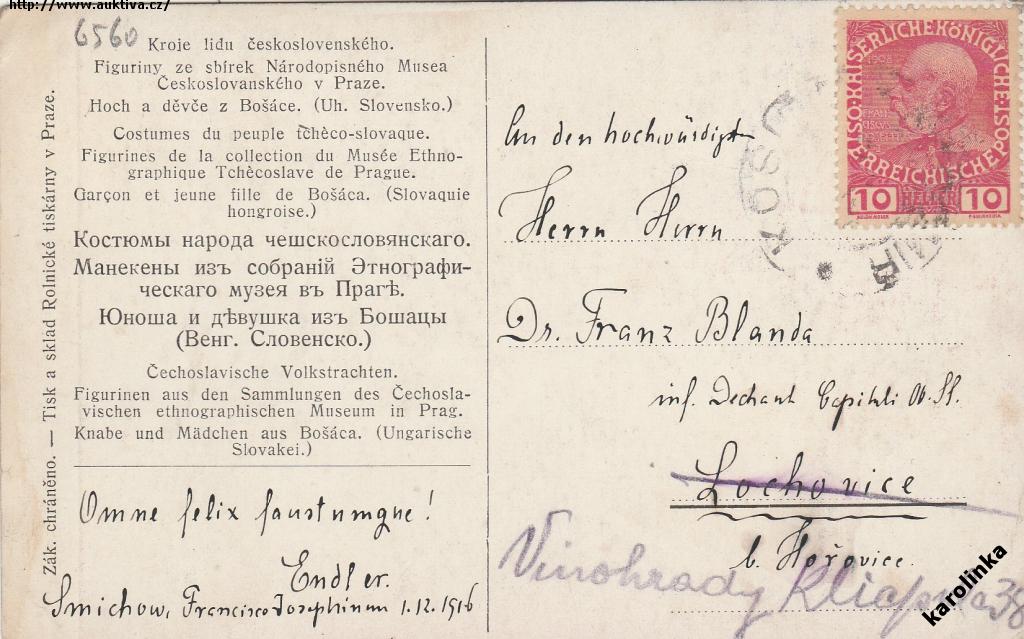 http://www.auktiva.cz/
6560
Kroje lidu československého.
Figuriny ze sbírek Národopisného Musea
Českoslovanského v Praze.
Hoch a děvče z Bošáce. (Uh. Slovensko.)
Costumes du peuple tchèco-slovaque.
Figurines de la collection du Musée Ethno-
graphique Tchècoslave de Prague.
Garçon et jeune fille de Bošáca. (Slovaquie
hongroise.)
Костюмы народа чешскословянскаго.
Манекены изъ собраній Этнографи-
ческаго музея въ Прагѣ.
Юноша и дѣвушка изъ Бошацы
(Венг. Словенско.)
Čechoslavische Volkstrachten.
Figurinen aus den Sammlungen des Čechosla-
vischen ethnographischen Museum in Prag.
Knabe und Mädchen aus Bošáca. (Ungarische
Slovakei.)
Zák. chráněno. — Tisk a sklad Rolnické tiskárny v Praze.
Omne felix faustumque!
Endler.
Smichow, Francisco Josephinum 1.12.1916
An den hochwürdigst
Herrn Herrn
Dr. Franz Blanda
inf. Dechant Capituli
Lochovice
b. Hořovice.
Vinohrady 38
KAISERLICHE KÖNIGLICHE
ÖSTERREICHISCHE POST
1908
10 HELLER 10
karolinka